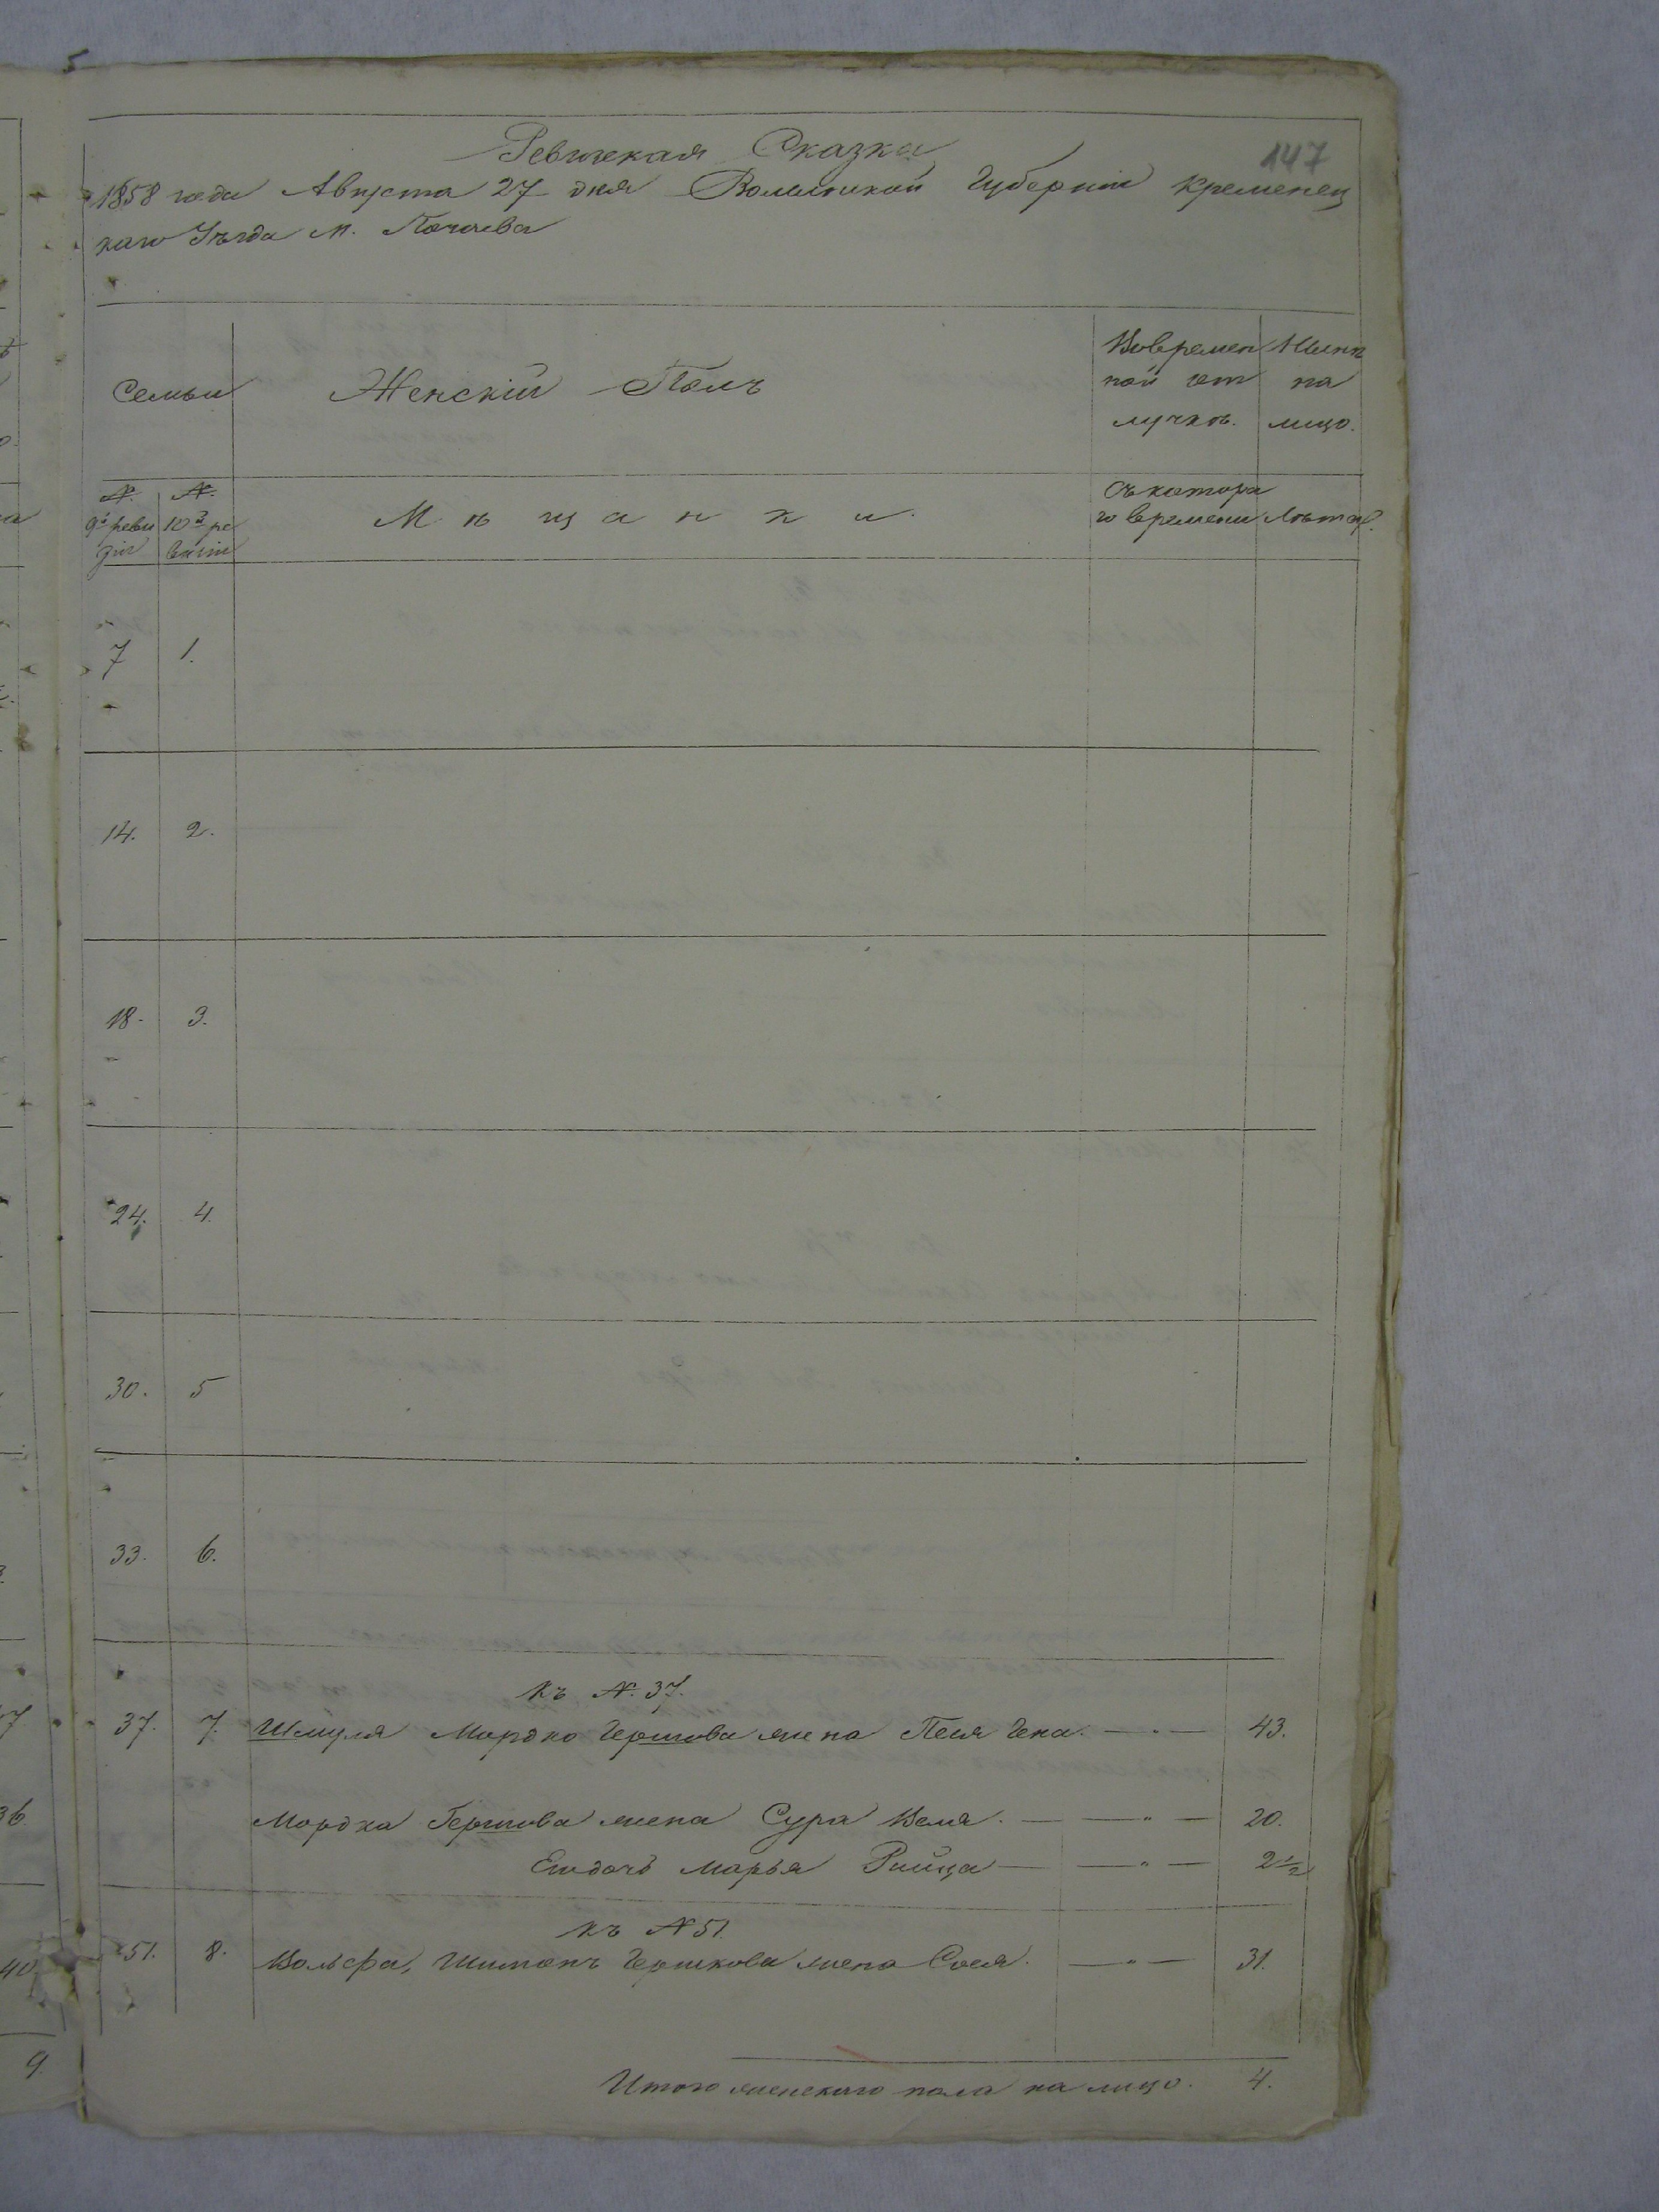 147
Ревизская Сказка
1858 года Августа 27 дня Волынской Губерніи Кременец
каго Уѣзда м. Почаева
Семьи
Женскій Полъ
Вовремен
ной от
лучкѣ.
Нынѣ
на
лицо.
№.
9й реви
зіи
№.
10й ре
визіи
Мѣщанки.
Съ котора
го времени
Лѣта.
7 1.
14. 2.
18. 3.
24. 4.
30. 5
33. 6.
Къ №. 37.
37. 7. Шмуля Мордко Гершова жена Песя Гена. — " — 43.
Мордка Гершова жена Сура Веля. — — " — 20.
Егодочь Марья Рийца — — " — 2½
Къ № 51.
51. 8. Вольфа, Шимонъ Гершкова жена Сося. — " — 31.
Итого женскаго пола на лицо. 4.